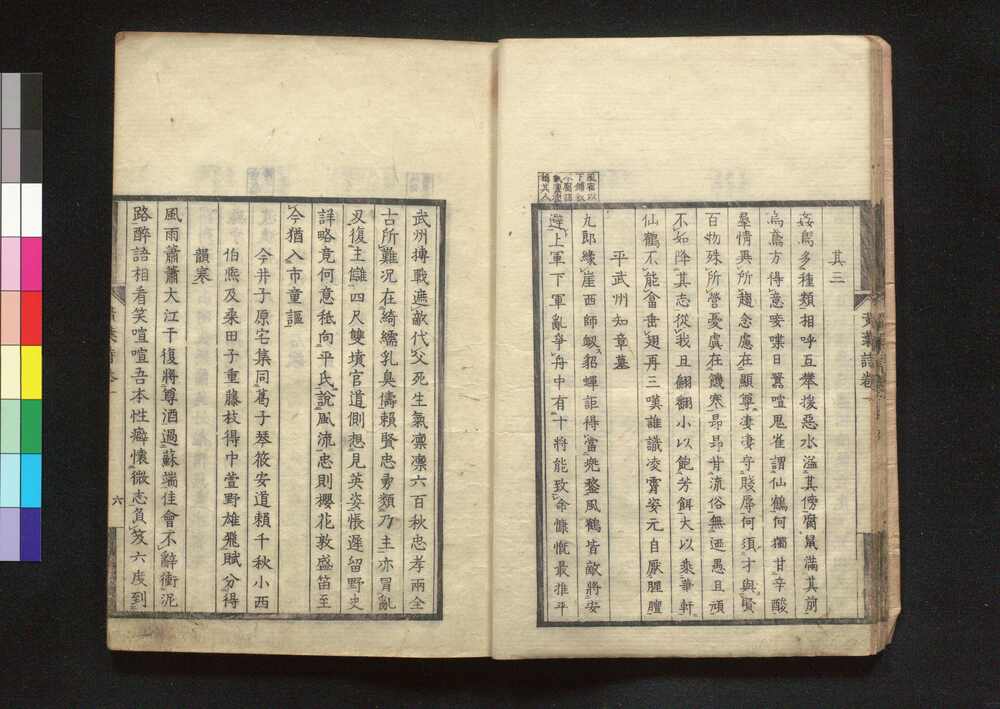 其三
姦鳥多種類相呼互攀援惡水溢其傍腐鼠滿其前
烏鳶方得意啑喋日囂喧鬼雀謂仙鶴何獨甘辛酸
羣情異所趨念慮在顯寧凄凄守賤辱何須才與賢
百物殊所營憂虞在饑寒昂昂背流俗無迺愚且頑
不如降其志從我且翩翻小以飽芳餌大以乘華軒
仙鶴不能奮垂翅再三嘆誰識凌霄姿元自厭腥膻
平武州知章墓
九郎緣崖西師蚓豹蟬詎得當兜鍪風鶴皆敵將安
避上軍下軍亂爭舟中有十將能致命慷慨最推平
黃葉詩卷一
武州摶戰遮敵代父死生氣凛凛六百秋忠孝兩全
古所難况在綺繻乳臭儔賴賢忠勇類乃主亦冒亂
刄復主讎四尺雙墳官道側想見英姿悵遲留野史
詳略竟何意秪向平氏說風流忠則櫻花敦盛笛至
今猶入市童謳
今井子原宅集同葛子琴筱安道賴千秋小西
伯熙及桑田子重藤枝得中萱野雄飛賦分得
韻寒
風雨蕭蕭大江干復將尊酒過蘇端佳會不辭衝泥
路醉語相看笑喧喧吾本性癖懷微志負笈六度到
六